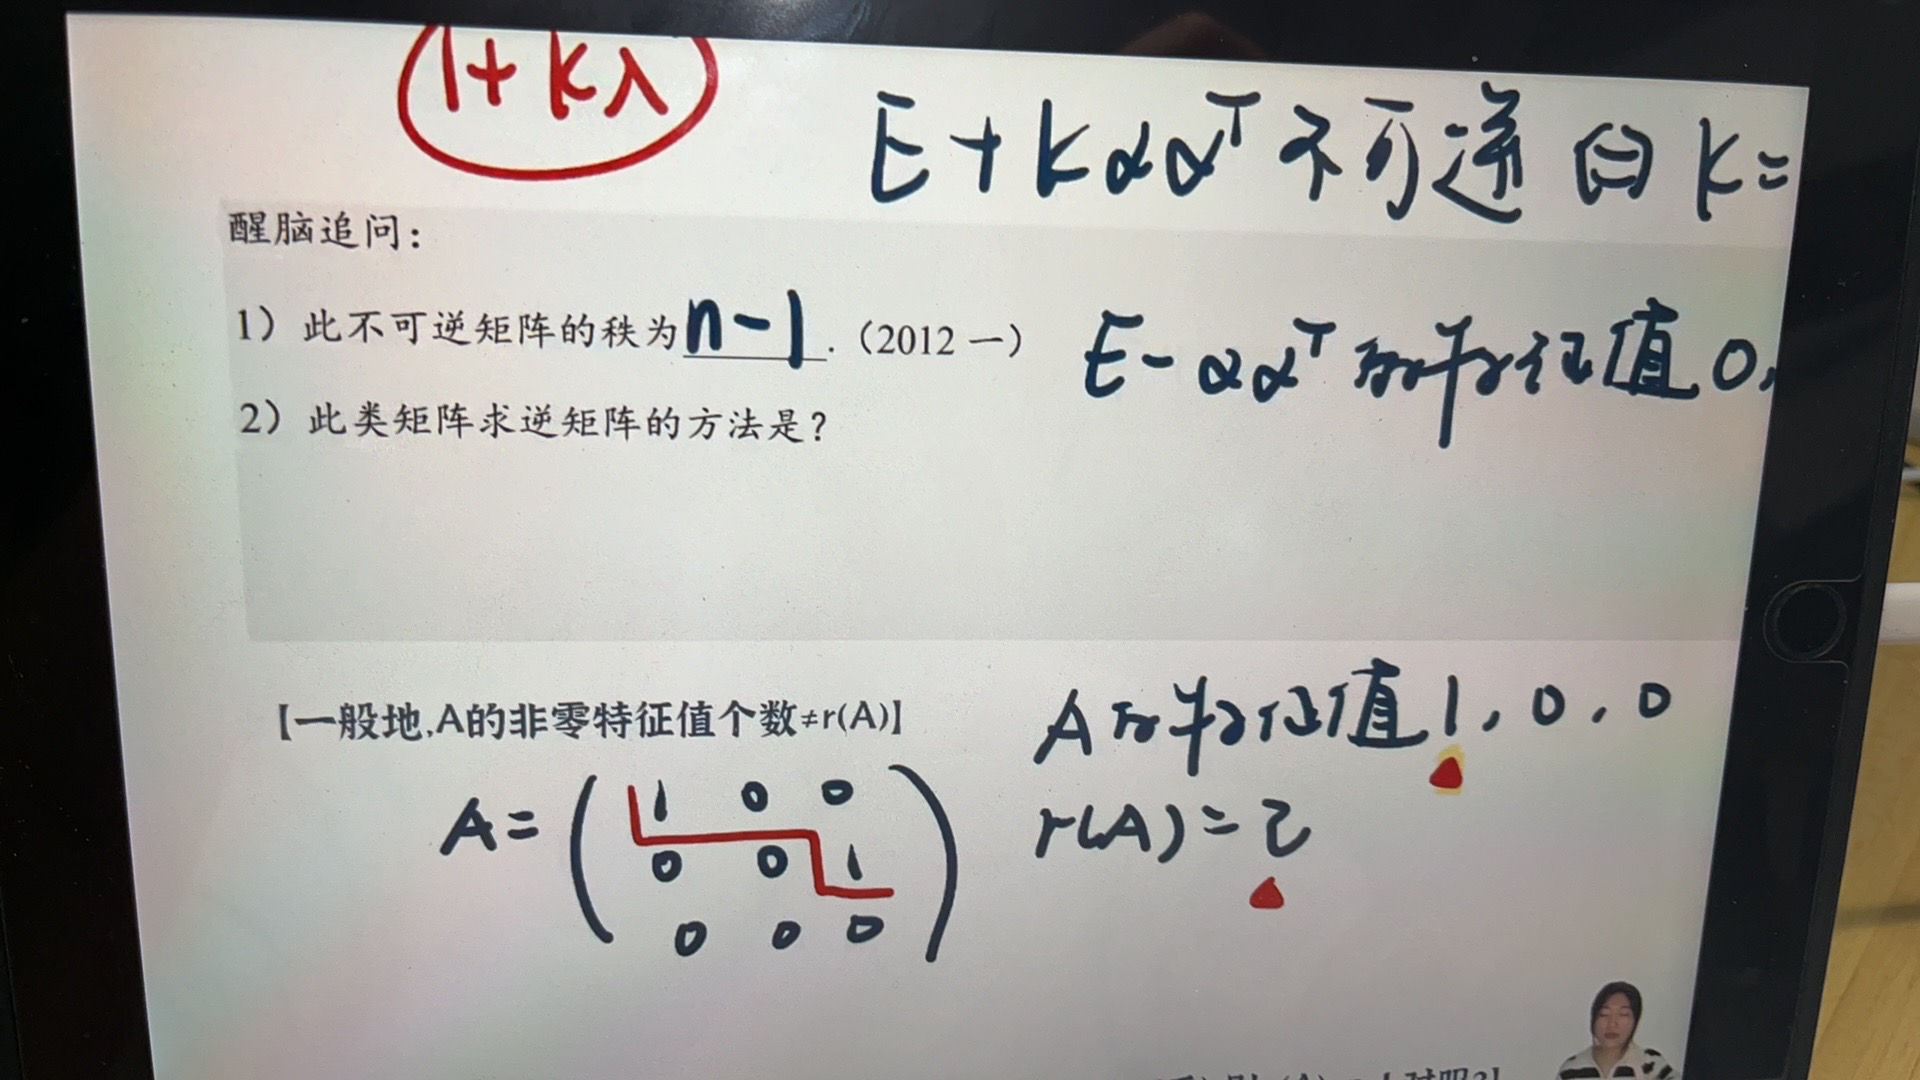 1+kλ
E+kαα^T 不可逆 ⇔ k=
醒脑追问：
1）此不可逆矩阵的秩为 n-1 .（2012 一）
E-αα^T 的特征值 0,
2）此类矩阵求逆矩阵的方法是？
【一般地,A的非零特征值个数≠r(A)】
A 的特征值 1, 0, 0
A= ( 1 0 0
0 0 1
0 0 0 )
r(A)=2